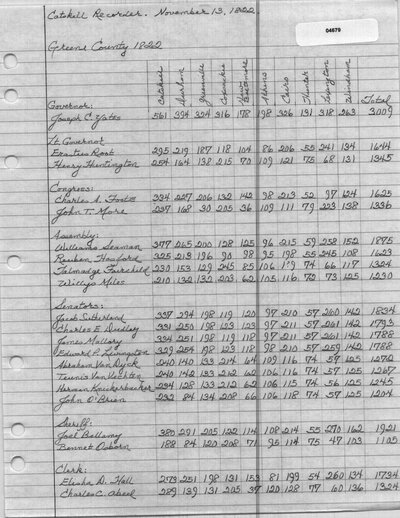 Catskill Recorder. November 13, 1822.
04679
Greene County 1822
Catskill Durham Greenville Coxsackie New Baltimore Athens Cairo Hunter Lexington Windham Total
Governor:
Joseph C. Yates 561 394 324 316 178 198 326 131 318 263 3009
Lt. Governor
Erastus Root 295 219 187 118 104 86 206 55 241 134 1644
Henry Huntington 254 164 138 215 70 109 121 75 68 131 1345
Congress:
Charles A. Foote 334 227 206 132 142 98 213 52 97 124 1625
John T. More 237 168 30 205 36 109 111 79 223 138 1336
Assembly:
Williams Seaman 377 265 200 128 125 96 215 59 258 152 1875
Reuben Hosford 325 213 196 90 98 95 198 55 245 108 1623
Talmadge Fairchild 230 153 129 245 85 106 74 66 117 1324
Willys Miles 210 132 132 203 62 105 116 72 73 125 1230
Senators:
Jacob Sutherland 337 294 198 119 120 97 210 57 260 142 1834
Charles E. Dudley 331 250 198 123 123 97 211 57 261 142 1793
James Mallory 334 251 198 119 118 97 211 57 261 142 1788
Edward P. Livingston 329 254 198 123 118 98 210 57 259 142 1788
Abraham Van Dyck 240 140 133 214 64 109 116 74 57 125 1272
Teunis Van Vechten 240 142 133 212 62 106 116 74 57 125 1267
Herman Knickerbacker 234 128 133 212 62 106 115 74 56 125 1245
John O'Brien 232 84 134 208 66 106 118 74 57 125 1204
Sheriff:
Joel Bellamy 380 291 205 122 114 108 214 55 270 162 1921
Bennet Osborn 188 84 120 208 71 95 114 75 47 103 1105
Clerk:
Elisha D. Hall 273 251 198 131 153 81 199 54 260 134 1734
Charles C. Abeel 289 139 131 205 37 120 128 77 60 136 1324